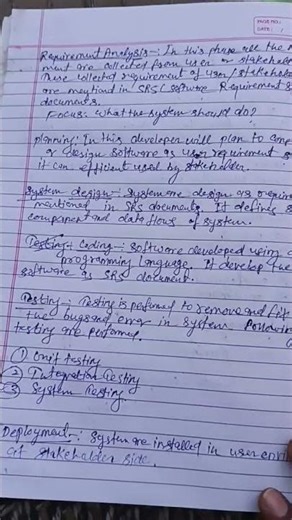 PAGE NO.:
DATE: /
Requirement Analysis :- In this phase all the
ment are collected from user or stakehol
These collected requirement of user/stakehol
are mentiond in SRS (software Requirement S
documents.
Focus: what the system should do?
planning: In this developer will plan to comp
or design software as user requirement
it can efficient used by stakeholder.
System design :- System are design as
mentioned in SRS documents. It defines
component and data flows of system.
Testing :- Coding :- Software developed using
programming language. It develop the
software as SRS document.
Testing :- Testing is performed to remove and fix
the bugs and error in system. Following
testing are performed.
① Unit testing
② Integration Testing
③ System Testing
Deployment :- System are installed in user envi
at stakeholder side.